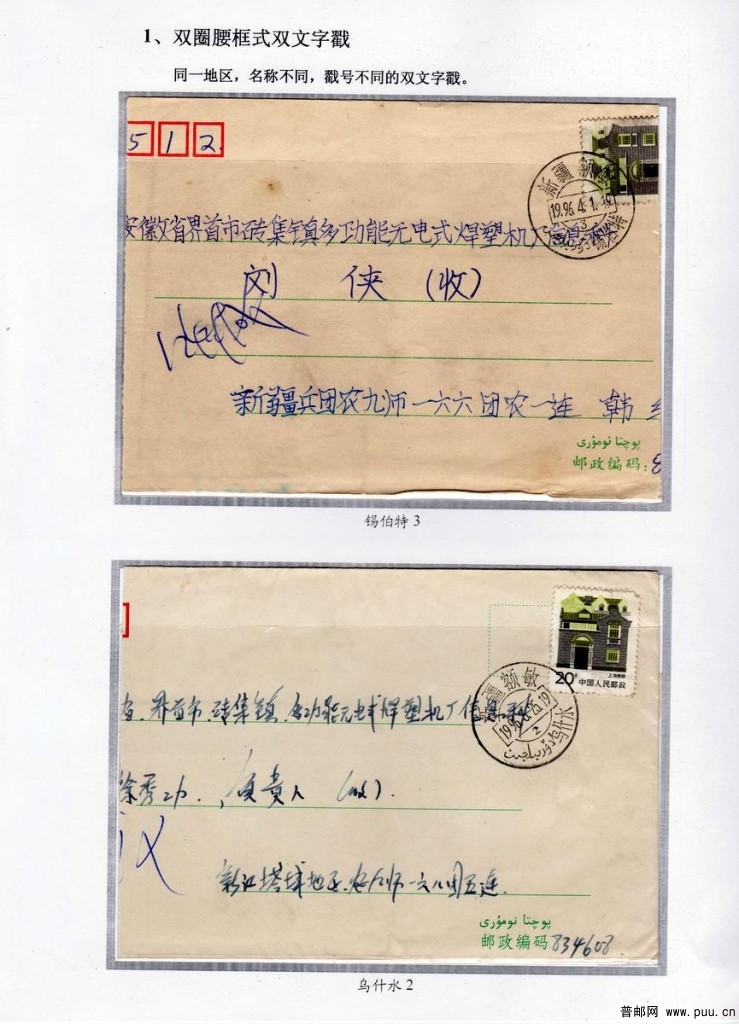 1、双圈腰框式双文字戳
同一地区，名称不同，戳号不同的双文字戳。
5 1 2
新疆 额敏
19.96.4.1.
3
锡伯特
安徽省界首市砖集镇多功能无电式焊塑机厂信息
刘 侠 (收)
新疆兵团农九师一六六团农一连 韩
پوچتا نومۇرى
邮政编码：8
锡伯特 3
20分
上海民居
中国人民邮政
新疆 额敏
19.96.6.25.19
2
乌什水
界首市 砖集镇 多功能无电式焊塑机厂信息
徐秀功 负责人 (收)
新江塔城地区 农九师一六八团五连
پوچتا نومۇرى
邮政编码834608
乌什水 2
普邮网 www.puu.cn